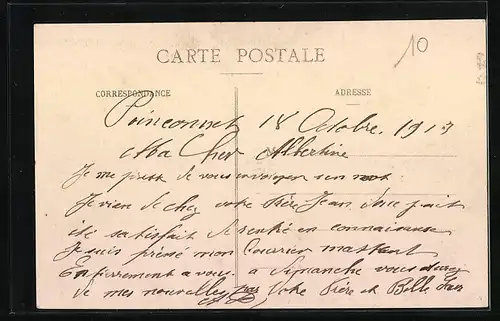 10
CARTE POSTALE
CORRESPONDANCE
ADRESSE
Poinconnet 18 Octobre, 1913
Ma Cher Albertine
Je me presse de vous envoyer un mot
Je vien de chez votre frère Jean
été satisfait de rentré en connaissance
Je suis préssé mon Courrier m'attent
a vous a Dimanche vous aurez
de mes nouvelles par Votre Frère et Belle Sœur